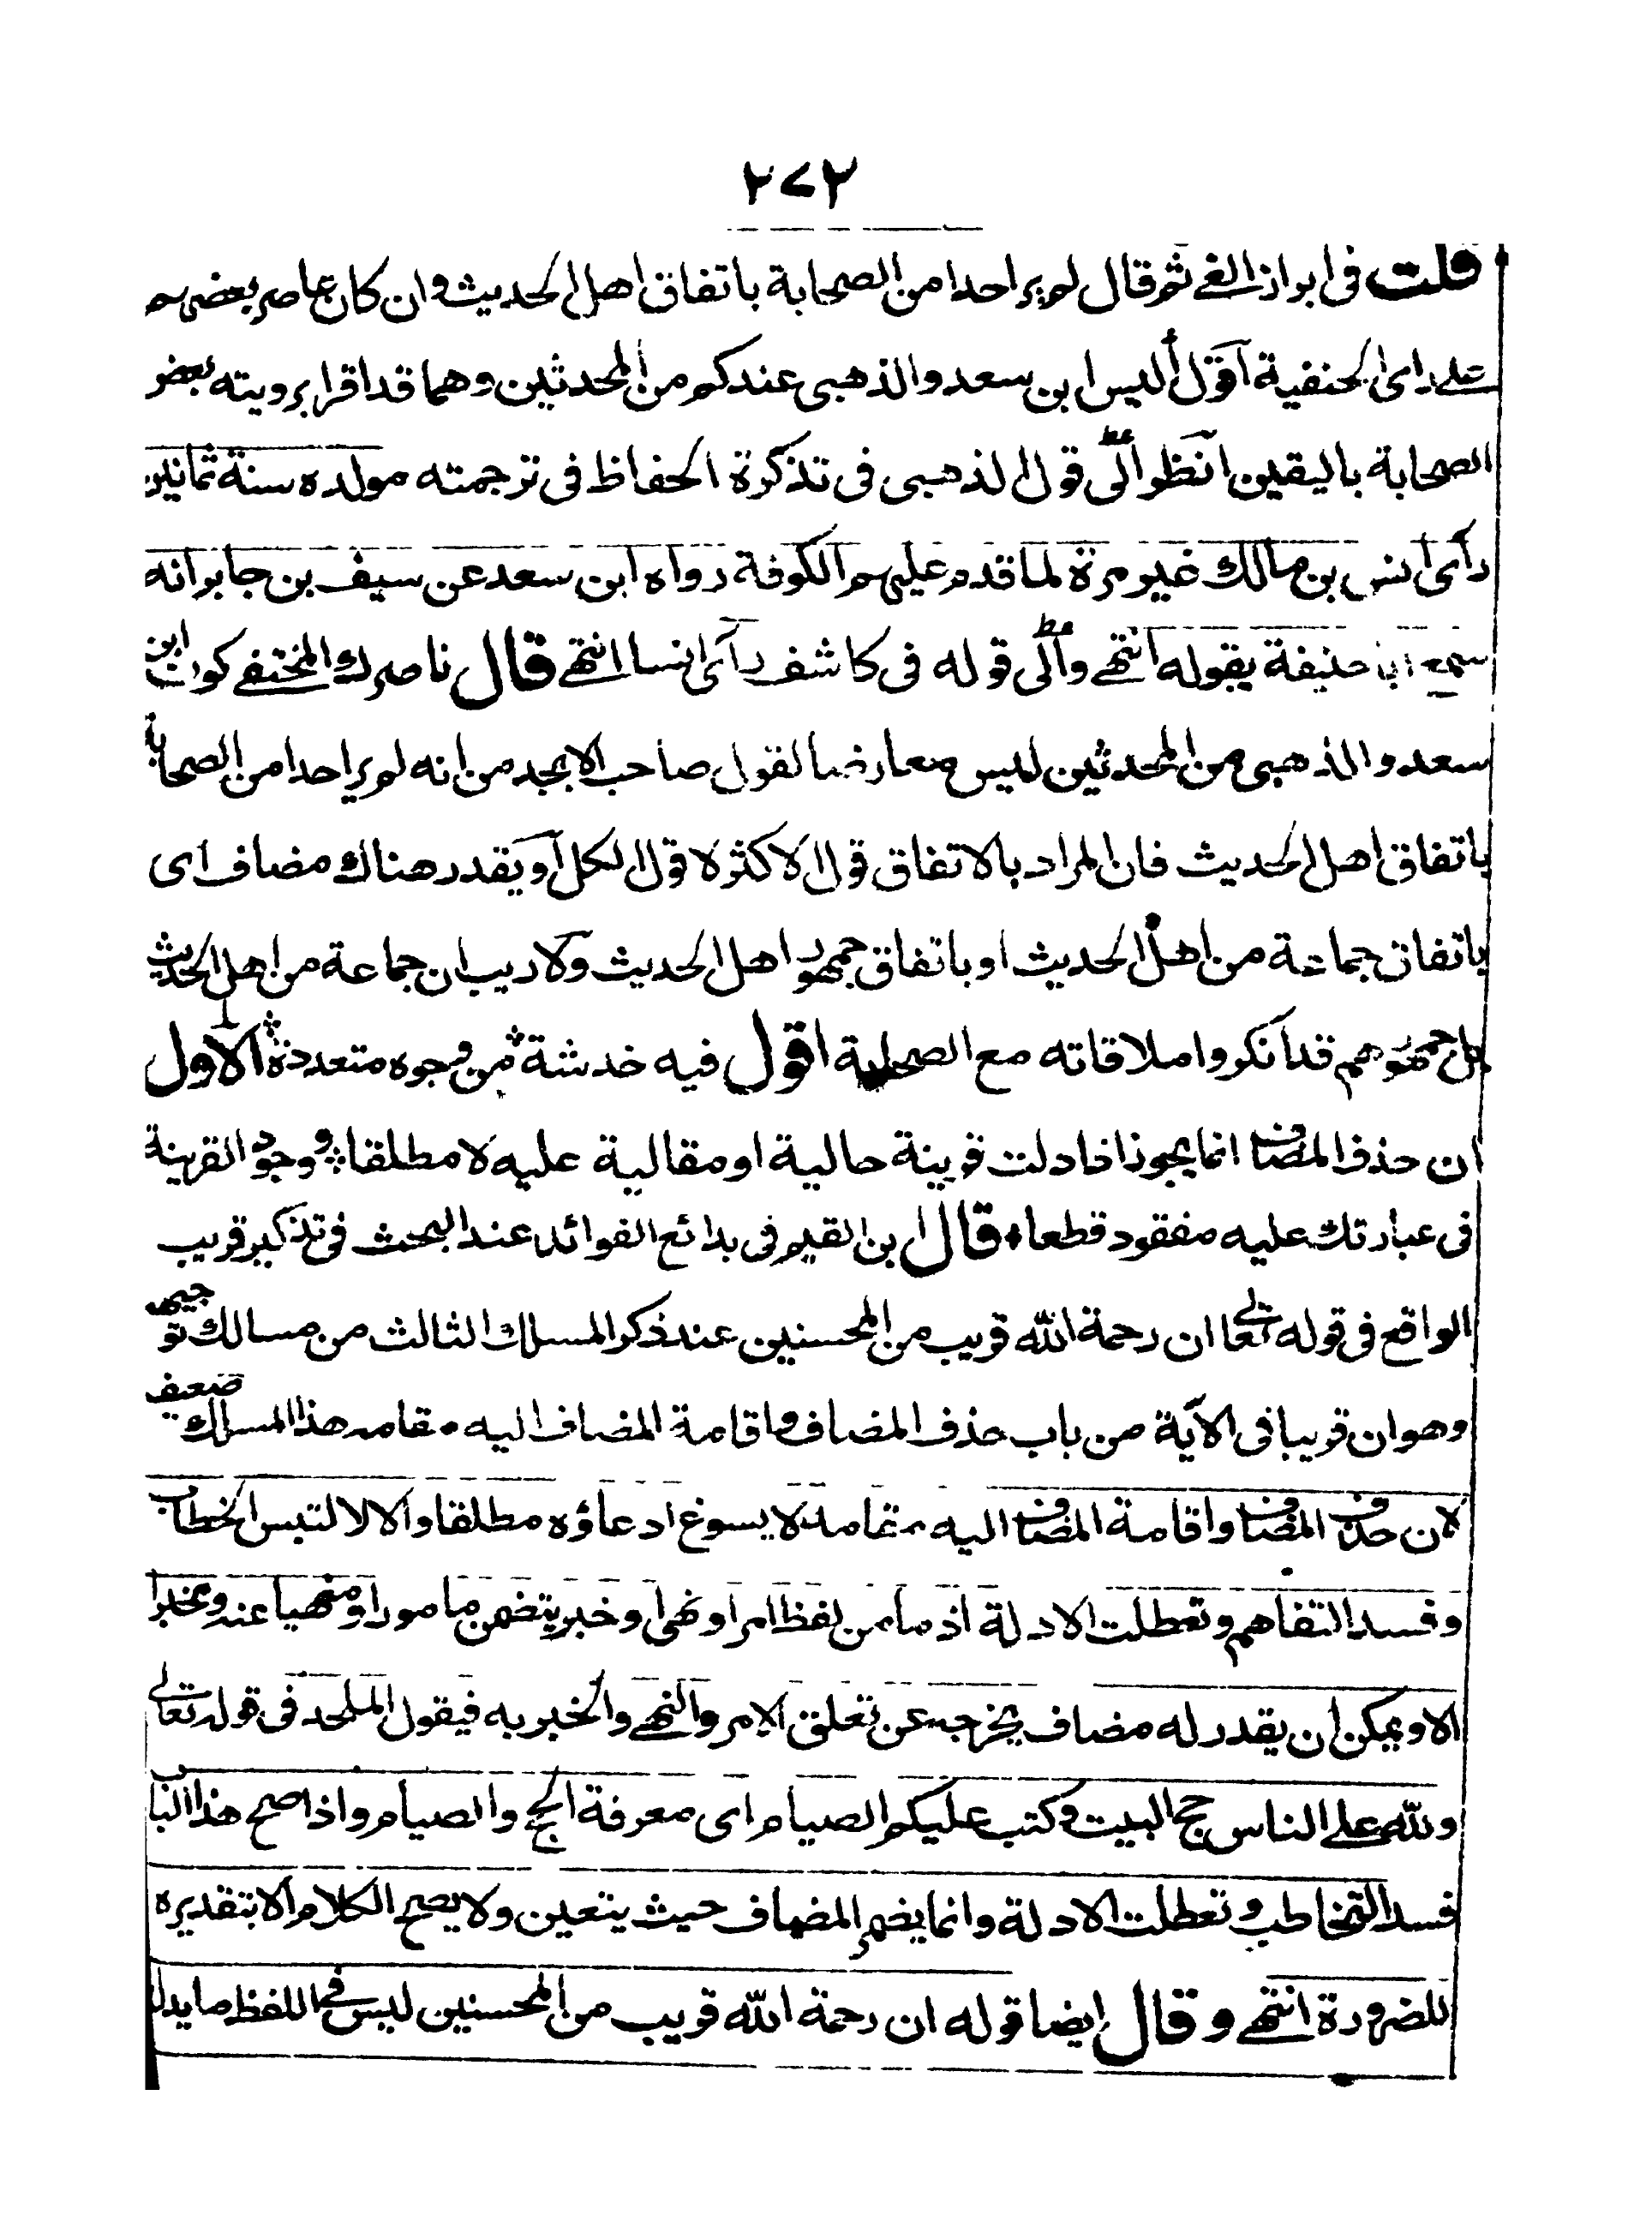 ٢٧٢
قلت فى ابراز الغى ثم قال لم ير احدا من الصحابة باتفاق اهل الحديث وان كان عاصر بعضهم
على راى الحنفية اقول أليس ابن سعد والذهبى عندكم من المحدثين وهما قد اقرا برويته بعض
الصحابة باليقين انظروا الى قول الذهبى فى تذكرة الحفاظ فى ترجمته مولده سنة ثمانين
رأى انس بن مالك غير مرة لما قدم عليهم الكوفة رواه ابن سعد عن سيف بن جابر انه
سمع ابا حنيفة يقوله انتهى والى قوله فى كاشف رآى انسا انتهى قال ناصرك المختفى كون ابن
سعد والذهبى من المحدثين ليس معارضا لقول صاحب الابجد من انه لم ير احدا من الصحابة
باتفاق اهل الحديث فان المراد بالاتفاق قول الاكثر لا قول الكل او يقدر هناك مضاف اى
باتفاق جماعة من اهل الحديث او باتفاق جمهور اهل الحديث ولا ريب ان جماعة من اهل الحديث
بل جمهورهم قد انكروا ملاقاته مع الصحابة اقول فيه خدشة من وجوه متعددة الاول
ان حذف المضاف انما يجوز اذا دلت قرينة حالية او مقالية عليه لا مطلقا ووجود القرينة
فى عبارتك عليه مفقود قطعا قال ابن القيم فى بدائع الفوائد عند البحث فى تذكير قريب
الواقع فى قوله تعالى ان رحمة الله قريب من المحسنين عند ذكر المسلك الثالث من مسالك توجيهه
وهو ان قريبا فى الآية من باب حذف المضاف واقامة المضاف اليه مقامه هذا المسلك ضعيف
لان حذف المضاف واقامة المضاف اليه مقامه لا يسوغ ادعاؤه مطلقا والا لالتبس الخطاب
وفسد التفاهم وتعطلت الادلة اذ ما من لفظ امر او نهى او خبر يتضمن مامورا او منهيا عنه ومخبرا
الا ويمكن ان يقدر له مضاف يخرجه عن تعلق الامر والنهى والخبر به فيقول الملحد فى قوله تعالى
ولله على الناس حج البيت وكتب عليكم الصيام اى معرفة الحج والصيام واذا صح هذا الباب
فسد التخاطب وتعطلت الادلة وانما يضمر المضاف حيث يتعين ولا يصح الكلام الا بتقديره
للضرورة انتهى وقال ايضا قوله ان رحمة الله قريب من المحسنين ليس فى اللفظ ما يدل